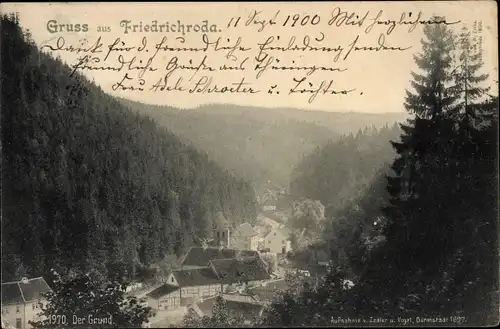 Gruss aus Friedrichroda. 11 Sept 1900 Mit herzlichem
Dank für d. freundliche Einladung senden
freundliche Grüsse aus Thüringen
Frau Adele Schroeter u. Tochter.
1970, Der Grund.
Aufnahme v. Zedler u. Vogel, Darmstadt 1897.